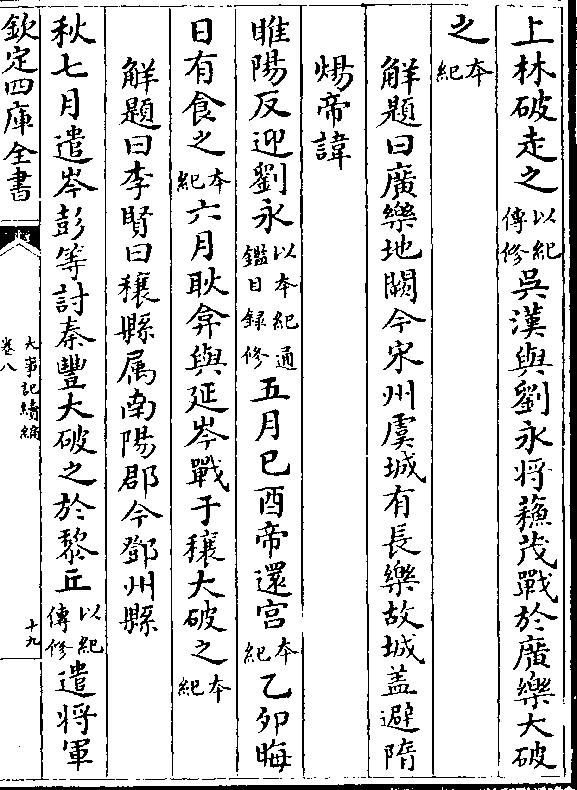 上林破走之以紀傳修吳漢與劉永将蘓茂戰於廣樂大破
之本紀
解題曰廣樂地闕今宋州虞城有長樂故城盖避隋
煬帝諱
睢陽反迎劉永以本紀通鑑目録修五月已酉帝還宫本紀乙夘晦
日有食之本紀六月耿弇與延岑戰于穰大破之本紀
解題曰李賢曰穰縣属南陽郡今鄧州縣
秋七月遣岑彭等討秦豐大破之於黎丘以紀傳修遣将軍
欽定四庫全書
大事記續編
卷八
十九